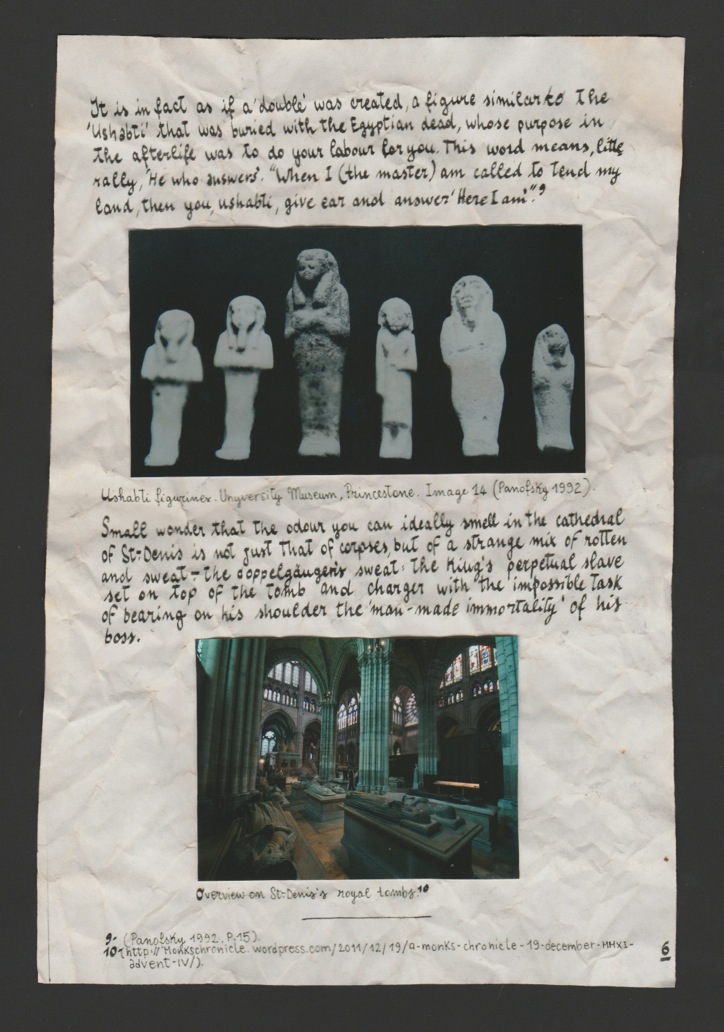 It is in fact as if a 'double' was created, a figure similar to the
'Ushabti' that was buried with the Egyptian dead, whose purpose in
the afterlife was to do your labour for you. This word means, litte
rally, 'He who answers'. "When I (the master) am called to tend my
land, then you, ushabti, give ear and answer 'Here I am'".9
Ushabti figurines. Unyversity Museum, Princestone. Image 14 (Panofsky 1992).
Small wonder that the odour you can ideally smell in the cathedral
of St-Denis is not just that of corpses, but of a strange mix of rotten
and sweat - the doppelgänger's sweat: the King's perpetual slave
set on top of the tomb and charger with the impossible task
of bearing on his shoulder the 'man-made immortality' of his
boss.
Overview on St-Denis's royal tombs.10
9- (Panofsky 1992, P.15).
10- (http://Monkschronicle.wordpress.com/2011/12/19/a-monks-chronicle-19-december-MMXI-
advent-IV/).
6